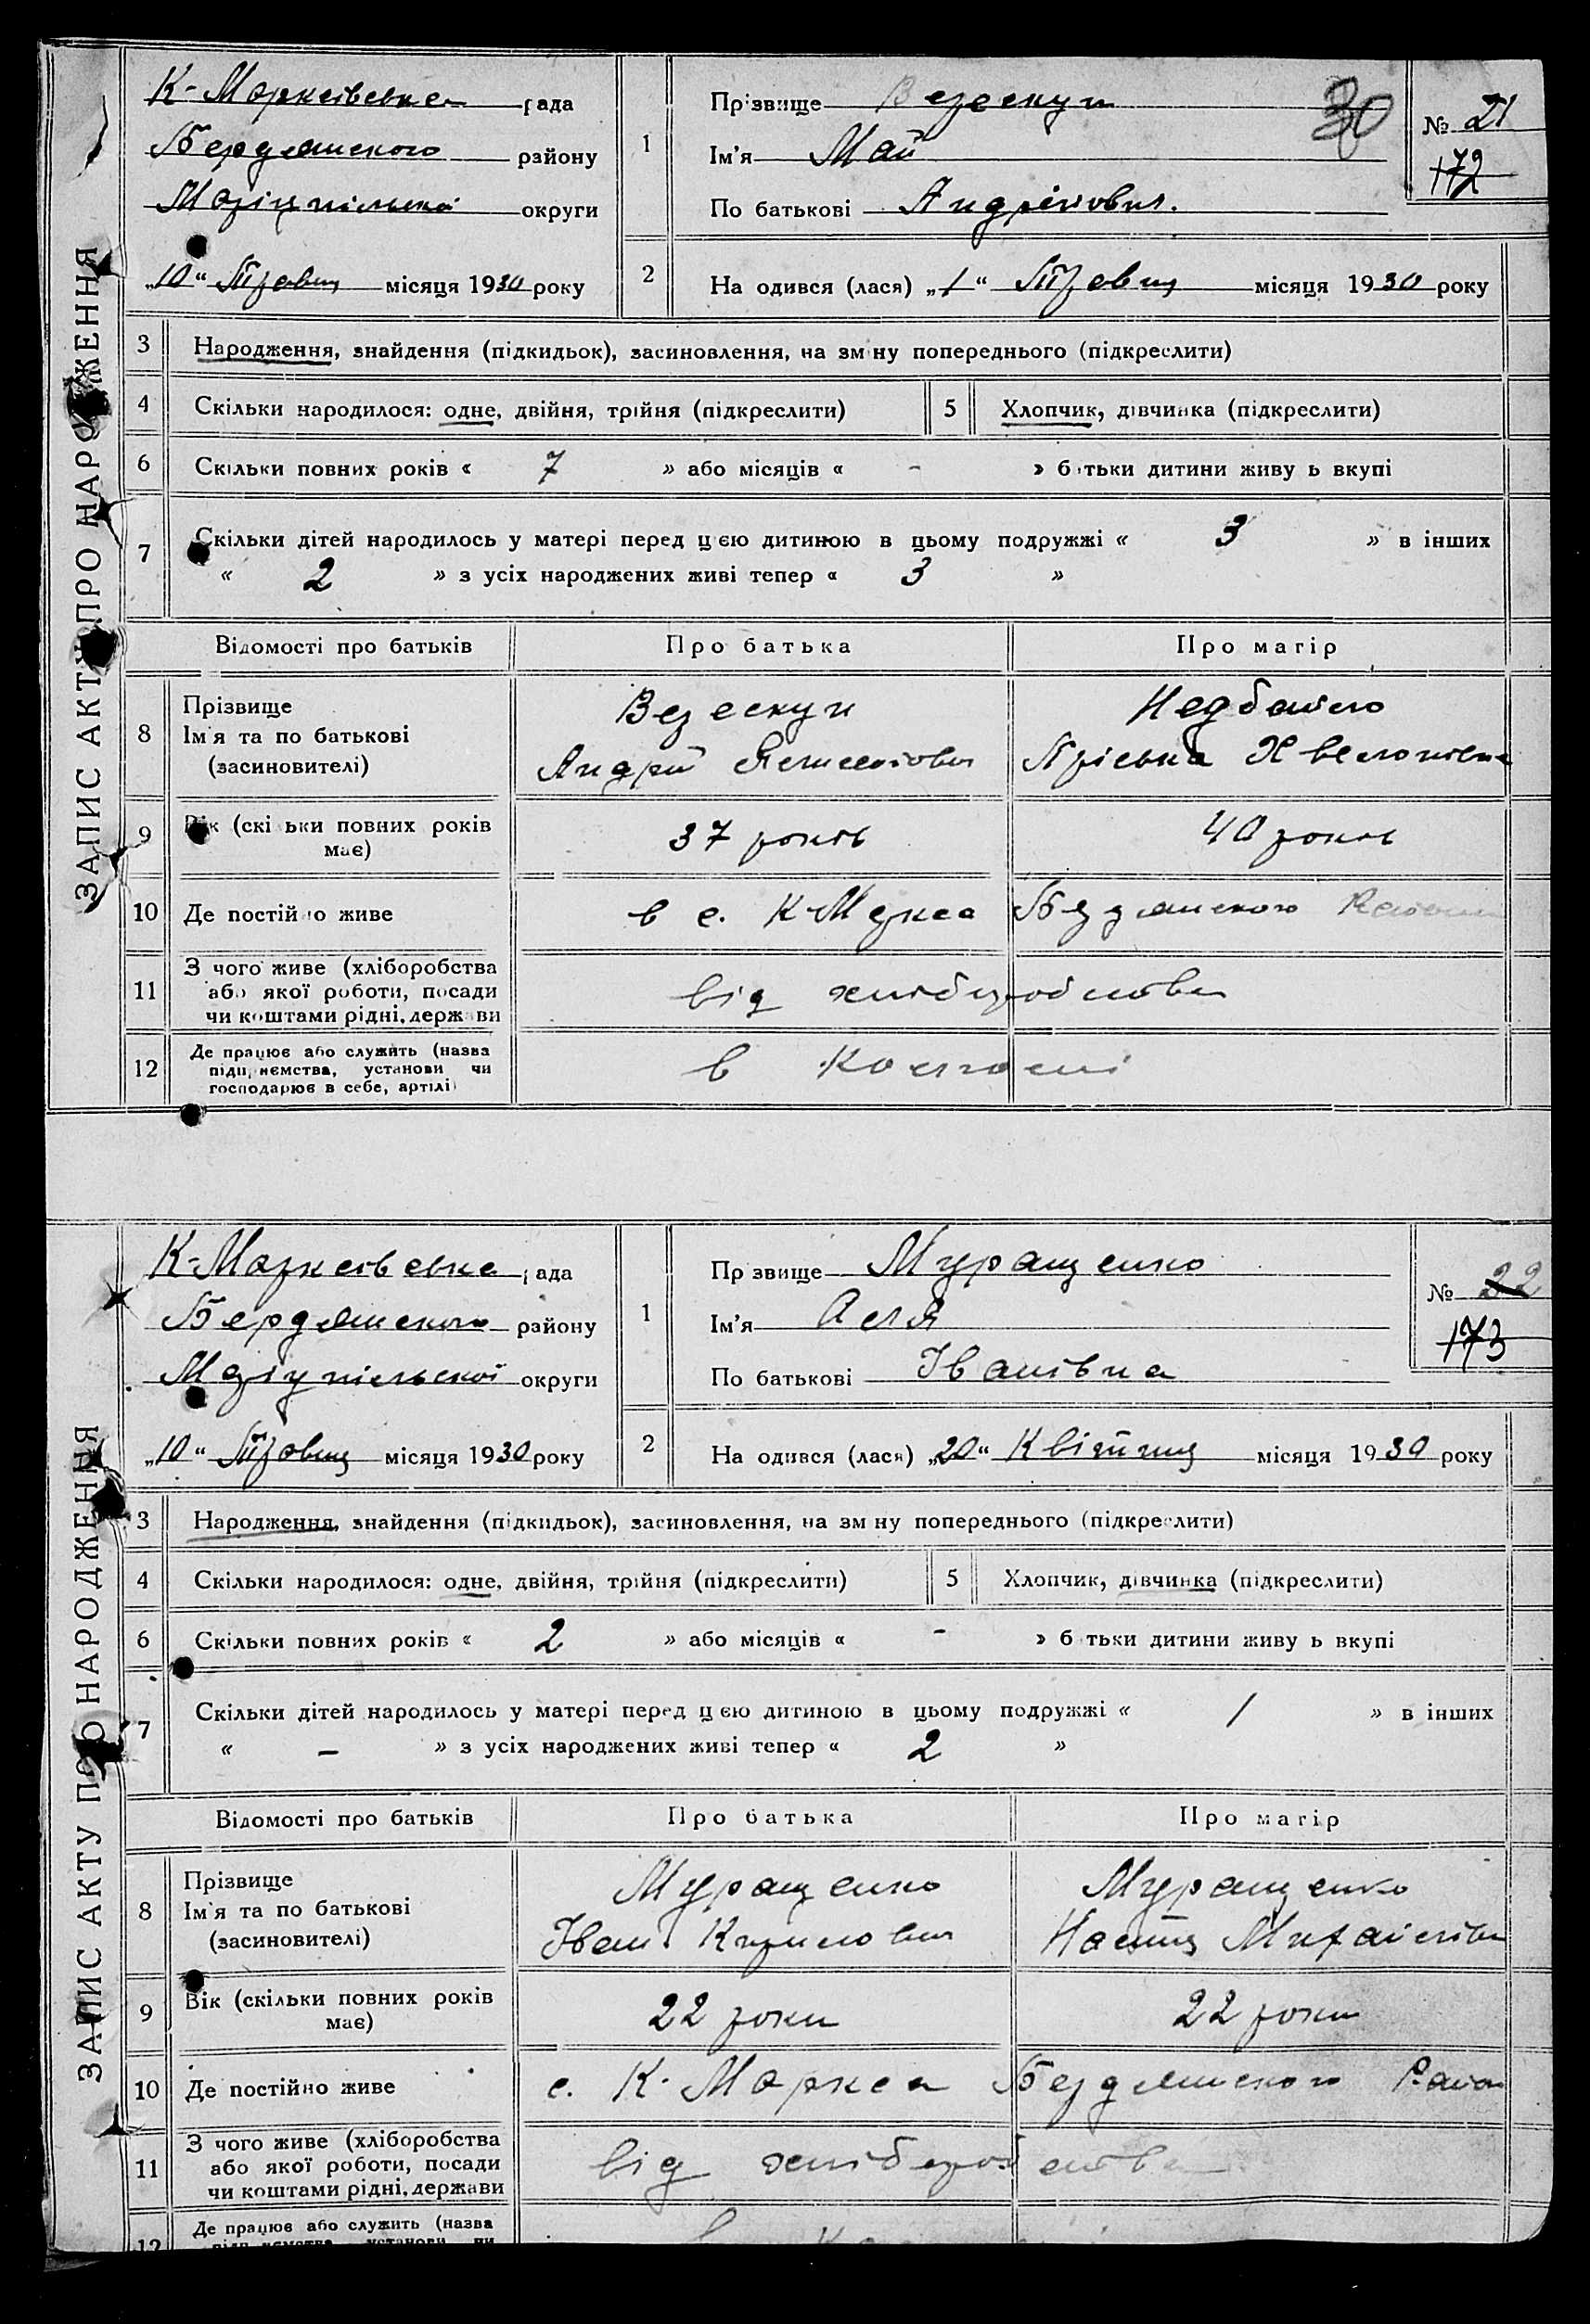 ЗАПИС АКТУ ПРО НАРОДЖЕННЯ
К-Марксівська рада
Бердянського району
Маріупільської округи
„10“ Травня місяця 1930 року
1
Прізвище
Ім'я Май
По батькові Андрійович.
30
№ 21
172
2
На одився (лася) „1“ Травня місяця 1930 року
3 Народження, знайдення (підкидьок), засиновлення, на зм ну попереднього (підкреслити)
4 Скільки народилося: одне, двійня, трійня (підкреслити) 5 Хлопчик, дівчинка (підкреслити)
6 Скільки повних років « 7 » або місяців « - » б тьки дитини живу ь вкупі
7 Скільки дітей народилось у матері перед цією дитиною в цьому подружжі « 3 » в інших
« 2 » з усіх народжених живі тепер « 3 »
Відомості про батьків Про батька Про матір
8 Прізвище
Ім'я та по батькові
(засиновителі)
Андрій
Недбайло
Пріська
9 Вік (скі ьки повних років
має)
37 років 40 років
10 Де постійно живе в с. К Маркса Бердянського Району
11 З чого живе (хліборобства
або якої роботи, посади
чи коштами рідні, держави
від хліборобства
12 Де працює або служить (назва
підп, иємства, установи чи
господарює в себе, артілі)
в
ЗАПИС АКТУ ПРО НАРОДЖЕННЯ
К-Марксівська рада
Бердянського району
Маріупільської округи
„10“ Травня місяця 1930 року
1
Пр звище Муращенко
Ім'я Ася
По батькові Іванівна
№ 22
173
2
На одився (лася) „20“ Квітня місяця 1930 року
3 Народження, знайдення (підкидьок), засиновлення, на зм ну попереднього (підкреслити)
4 Скільки народилося: одне, двійня, трійня (підкреслити) 5 Хлопчик, дівчинка (підкреслити)
6 Скільки повних років « 2 » або місяців « - » б тьки дитини живу ь вкупі
7 Скільки дітей народилось у матері перед цією дитиною в цьому подружжі « 1 » в інших
« – » з усіх народжених живі тепер « 2 »
Відомості про батьків Про батька Про матір
8 Прізвище
Ім'я та по батькові
(засиновителі)
Муращенко
Іван Кирилович
Муращенко
Настя Михайлівна
9 Вік (скільки повних років
має)
22 роки 22 роки
10 Де постійно живе с. К. Маркса Бердянського Району
11 З чого живе (хліборобства
або якої роботи, посади
чи коштами рідні, держави
від хліборобства
12 Де працює або служить (назва